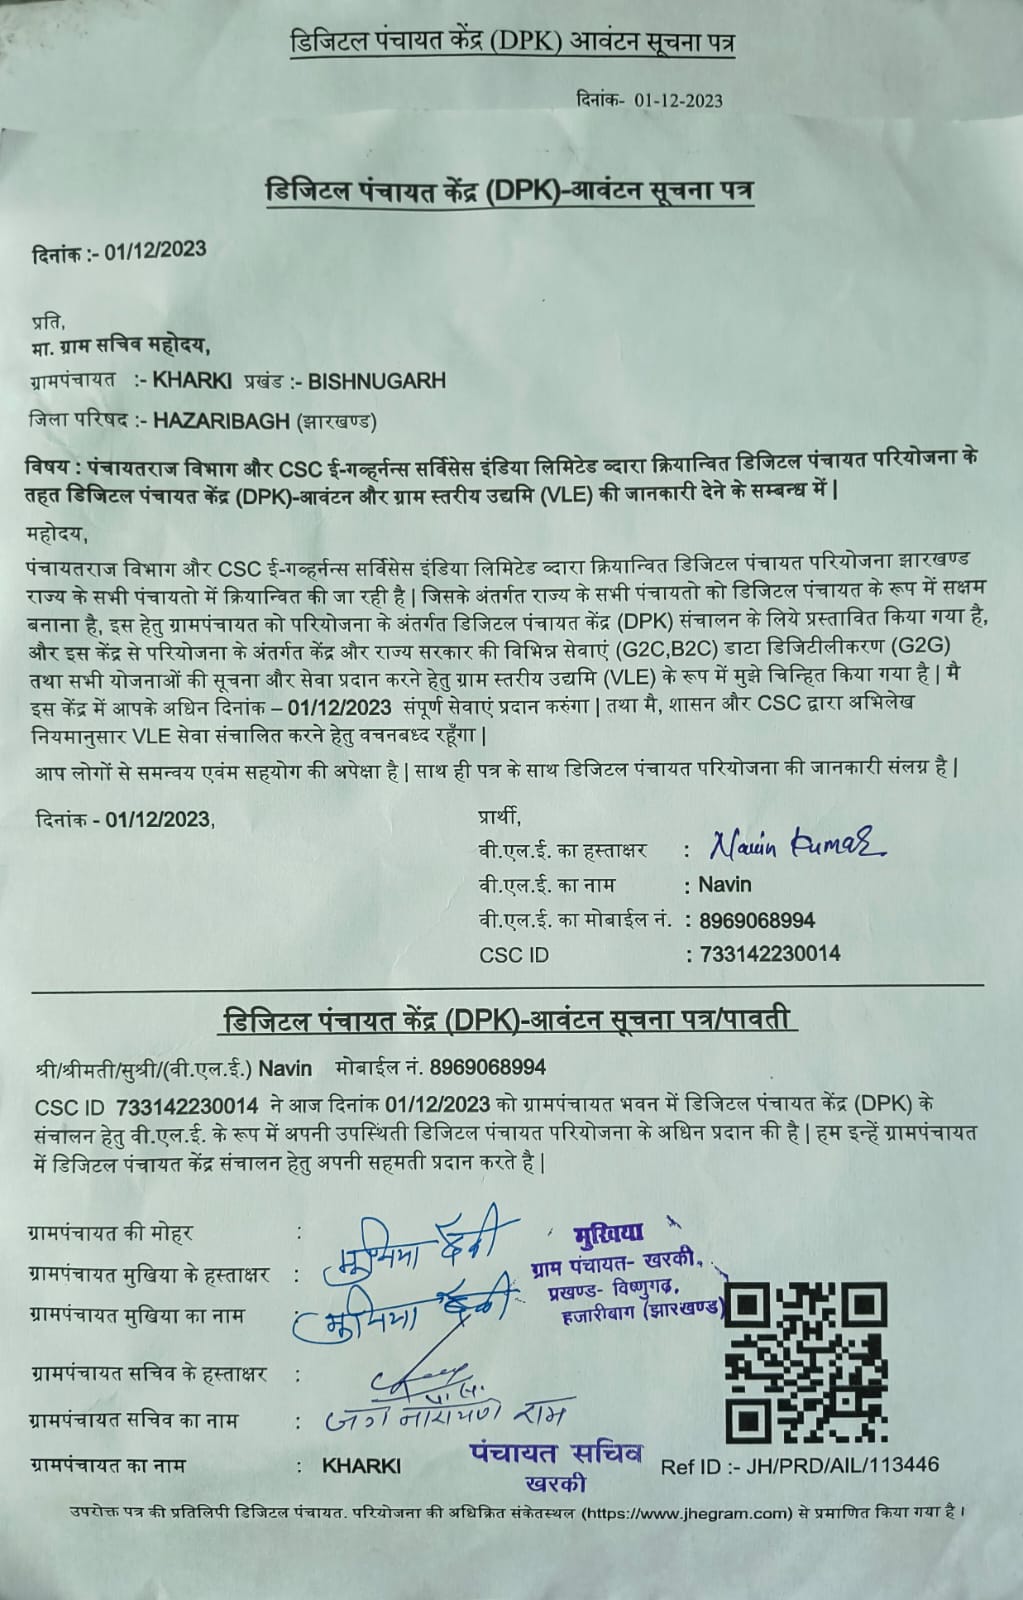 डिजिटल पंचायत केंद्र (DPK) आवंटन सूचना पत्र
दिनांक- 01-12-2023
डिजिटल पंचायत केंद्र (DPK)-आवंटन सूचना पत्र
दिनांक :- 01/12/2023
प्रति,
मा. ग्राम सचिव महोदय,
ग्रामपंचायत :- KHARKI प्रखंड :- BISHNUGARH
जिला परिषद :- HAZARIBAGH (झारखण्ड)
विषय : पंचायतराज विभाग और CSC ई-गव्हर्नन्स सर्विसेस इंडिया लिमिटेड व्दारा क्रियान्वित डिजिटल पंचायत परियोजना के
तहत डिजिटल पंचायत केंद्र (DPK)-आवंटन और ग्राम स्तरीय उद्यमि (VLE) की जानकारी देने के सम्बन्ध में |
महोदय,
पंचायतराज विभाग और CSC ई-गव्हर्नन्स सर्विसेस इंडिया लिमिटेड व्दारा क्रियान्वित डिजिटल पंचायत परियोजना झारखण्ड
राज्य के सभी पंचायतो में क्रियान्वित की जा रही है | जिसके अंतर्गत राज्य के सभी पंचायतो को डिजिटल पंचायत के रूप में सक्षम
बनाना है, इस हेतु ग्रामपंचायत को परियोजना के अंतर्गत डिजिटल पंचायत केंद्र (DPK) संचालन के लिये प्रस्तावित किया गया है,
और इस केंद्र से परियोजना के अंतर्गत केंद्र और राज्य सरकार की विभिन्न सेवाएं (G2C,B2C) डाटा डिजिटीलीकरण (G2G)
तथा सभी योजनाओं की सूचना और सेवा प्रदान करने हेतु ग्राम स्तरीय उद्यमि (VLE) के रूप में मुझे चिन्हित किया गया है | मै
इस केंद्र में आपके अधिन दिनांक – 01/12/2023 संपूर्ण सेवाएं प्रदान करुंगा | तथा मै, शासन और CSC द्वारा अभिलेख
नियमानुसार VLE सेवा संचालित करने हेतु वचनबध्द रहूँगा |
आप लोगों से समन्वय एवंम सहयोग की अपेक्षा है | साथ ही पत्र के साथ डिजिटल पंचायत परियोजना की जानकारी संलग्न है |
दिनांक - 01/12/2023,
प्रार्थी,
वी.एल.ई. का हस्ताक्षर : Navin Kumar
वी.एल.ई. का नाम : Navin
वी.एल.ई. का मोबाईल नं. : 8969068994
CSC ID : 733142230014
डिजिटल पंचायत केंद्र (DPK)-आवंटन सूचना पत्र/पावती
श्री/श्रीमती/सुश्री/(वी.एल.ई.) Navin मोबाईल नं. 8969068994
CSC ID 733142230014 ने आज दिनांक 01/12/2023 को ग्रामपंचायत भवन में डिजिटल पंचायत केंद्र (DPK) के
संचालन हेतु वी.एल.ई. के रूप में अपनी उपस्थिती डिजिटल पंचायत परियोजना के अधिन प्रदान की है | हम इन्हें ग्रामपंचायत
में डिजिटल पंचायत केंद्र संचालन हेतु अपनी सहमती प्रदान करते है |
ग्रामपंचायत की मोहर :
मुखिया
ग्राम पंचायत- खरकी,
प्रखण्ड- विष्णुगढ़,
हजारीबाग (झारखण्ड)
ग्रामपंचायत मुखिया के हस्ताक्षर : देवी
ग्रामपंचायत मुखिया का नाम : देवी
ग्रामपंचायत सचिव के हस्ताक्षर :
ग्रामपंचायत सचिव का नाम : जग नारायण राम
पंचायत सचिव
खरकी
ग्रामपंचायत का नाम : KHARKI
Ref ID :- JH/PRD/AIL/113446
उपरोक्त पत्र की प्रतिलिपी डिजिटल पंचायत. परियोजना की अधिक्रित संकेतस्थल (https://www.jhegram.com) से प्रमाणित किया गया है ।